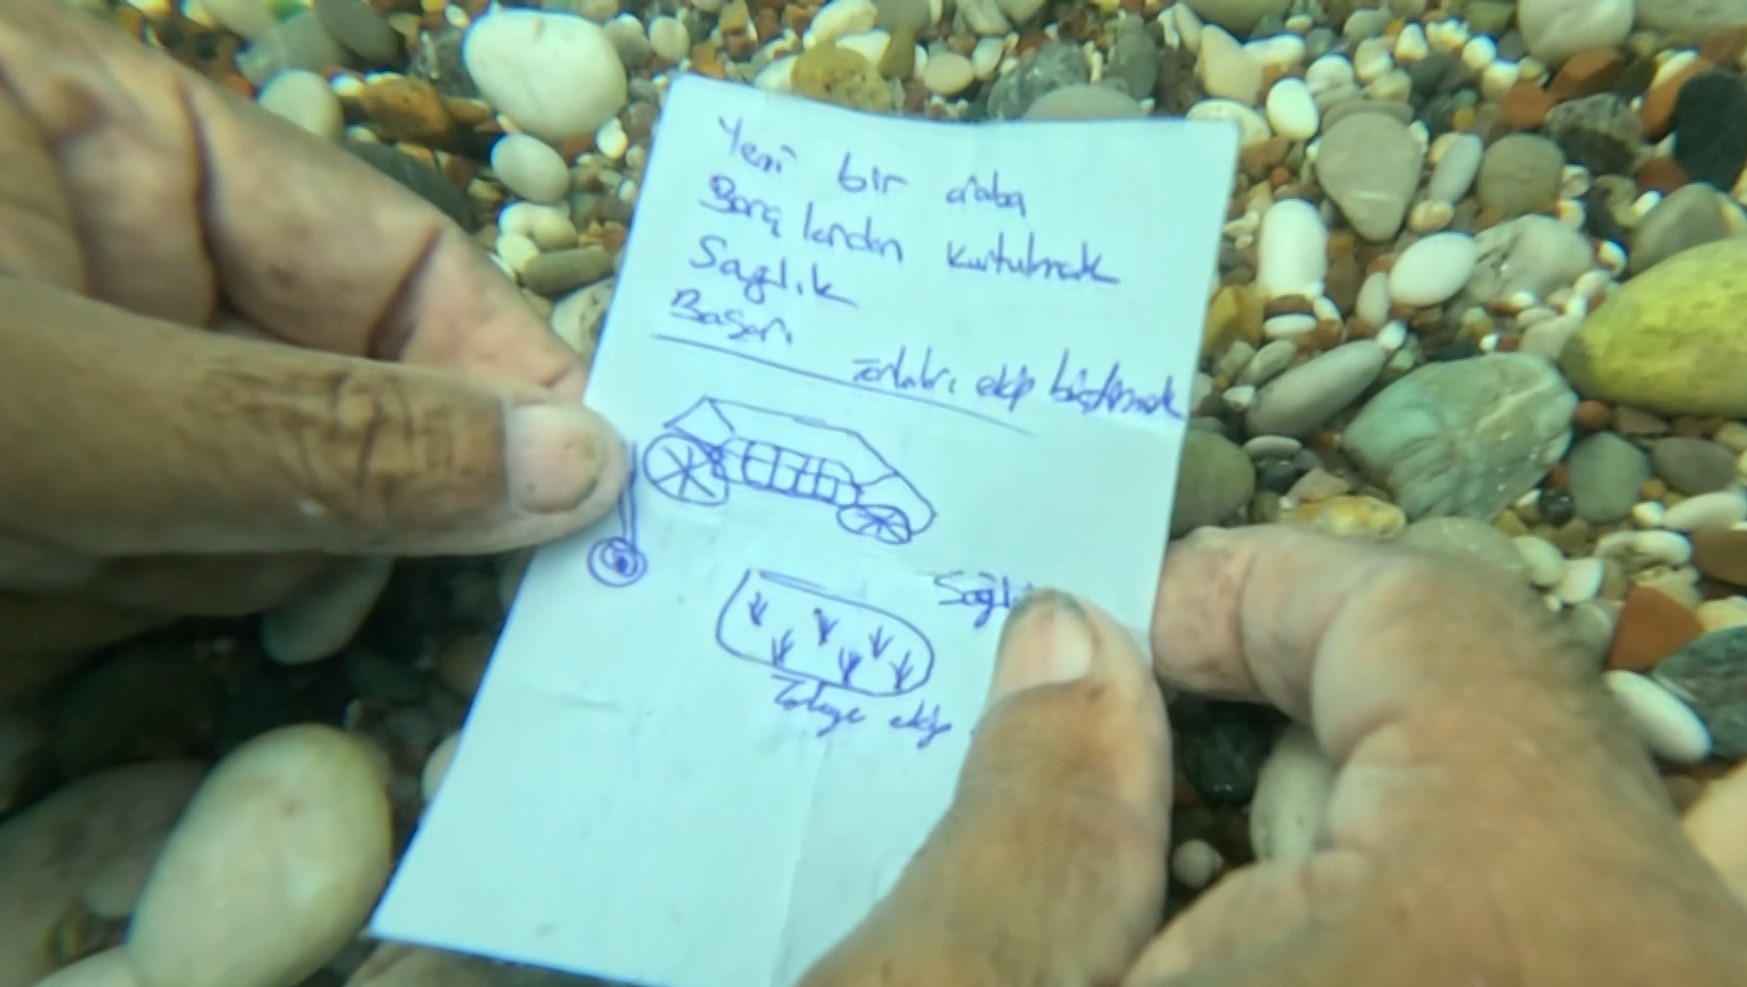 Yeni bir araba
Borçlardan kurtulmak
Sağlık
Başarı
Tarlaları ekip biçtirmek
Sağlı
Tarlaya ekip